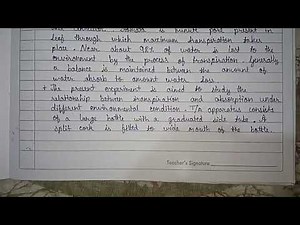 stomata is minute pore present in
leaf through which maximum transpiration takes
place. Near about 98% of water is lost to the
environment by the process of transpiration generally
a balance is maintained between the amount of
water absorb to amount water loss
The present experiment is aimed to study the
relationship between transpiration and absorption under
different environmental condition. T/A apparatus consists
of a large bottle with a graduated side tube. A
split cork is fitted to wide mouth of the bottle.
Teacher's Signature